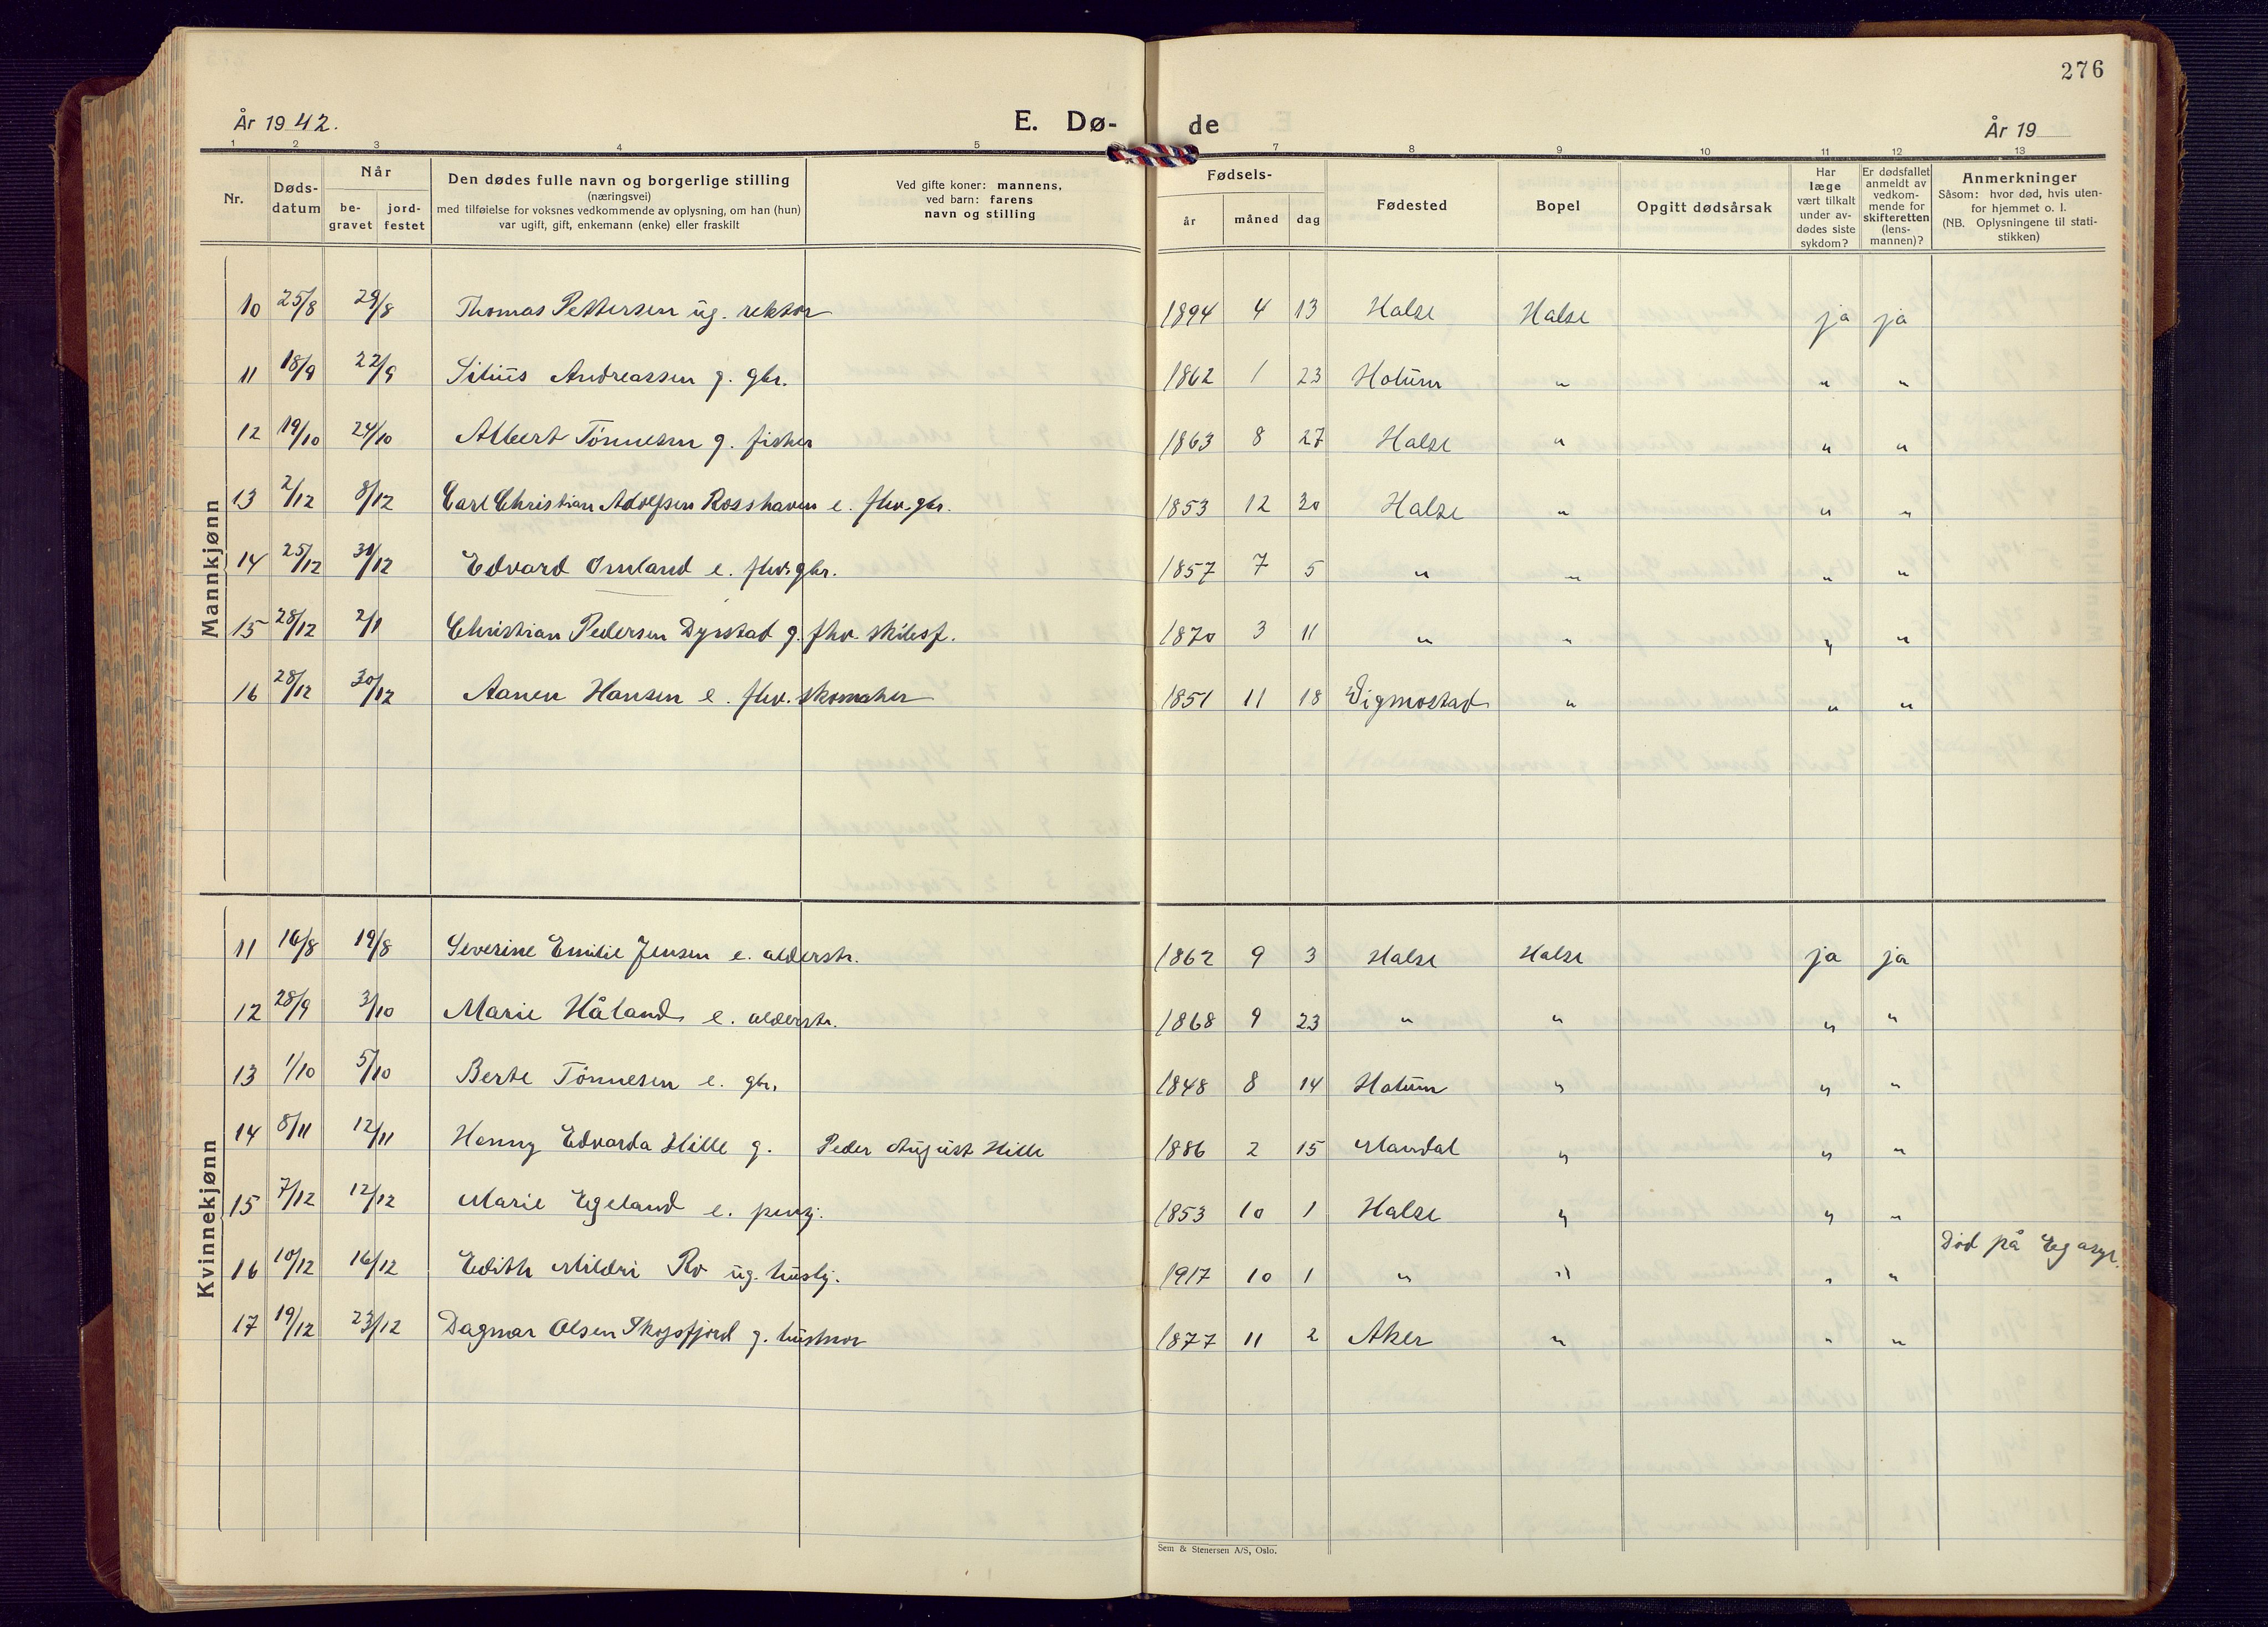 276
År 1942. E. Dø- de År 19
1 2 3 4 5 7 8 9 10 11 12 13
Nr. Døds-datum Når be-gravet jord-festet Den dødes fulle navn og borgerlige stilling (næringsvei) med tilføielse for voksnes vedkommende av oplysning, om han (hun) var ugift, gift, enkemann (enke) eller fraskilt Ved gifte koner: mannens, ved barn: farens navn og stilling Fødsels- år måned dag Fødested Bopel Opgitt dødsårsak Har læge vært tilkalt under av-dødes siste sykdom? Er dødsfallet anmeldt av vedkom-mende for skifteretten (lens-mannen)? Anmerkninger Såsom: hvor død, hvis uten-for hjemmet o. l. (NB. Oplysningene til stati-stikken)
Mannkjønn
10 25/8 29/8 Thomas Pettersen ug. rektor 1894 4 13 Halse Halse ja ja
11 18/9 22/9 Andreassen g. gbr. 1862 1 23 Holum " " "
12 19/10 24/10 Albert Tønnesen g. fisker 1863 8 27 Halse " " "
13 2/12 8/12 Carl Christian Adolfsen Rosshaven e. fhv. gbr. 1853 12 20 Halse " " "
14 25/12 31/12 Edvard Omland e. fhv. gbr. 1857 7 5 " " " "
15 28/12 2/1 Christian Pedersen Dyrstad g. fhv. skibsf. 1870 3 11 " " " "
16 28/12 30/12 Aanen Hansen e. fhv. skomaker 1851 11 18 Vigmostad " " "
Kvinnekjønn
11 16/8 19/8 Severine Emilie Jensen e. alderstr. 1862 9 3 Halse Halse ja ja
12 28/9 3/10 Marie Håland e. alderstr. 1868 9 23 " " " "
13 1/10 5/10 Berte Tønnesen e. gbr. 1848 8 14 Holum " " "
14 8/11 12/11 Henny Edvarda Hille g. Peder August Hille 1886 2 15 Mandal " " "
15 7/12 12/12 Marie Egeland e. pensj. 1853 10 1 Halse " " "
16 10/12 16/12 Edith Mildri Ro ug. hushj. 1917 10 1 " " " " Død på Eg asyl.
17 19/12 23/12 Dagmar Olsen Skogsfjord g. husmor 1877 11 2 Aker " " "
Sem & Stenersen A/S, Oslo.